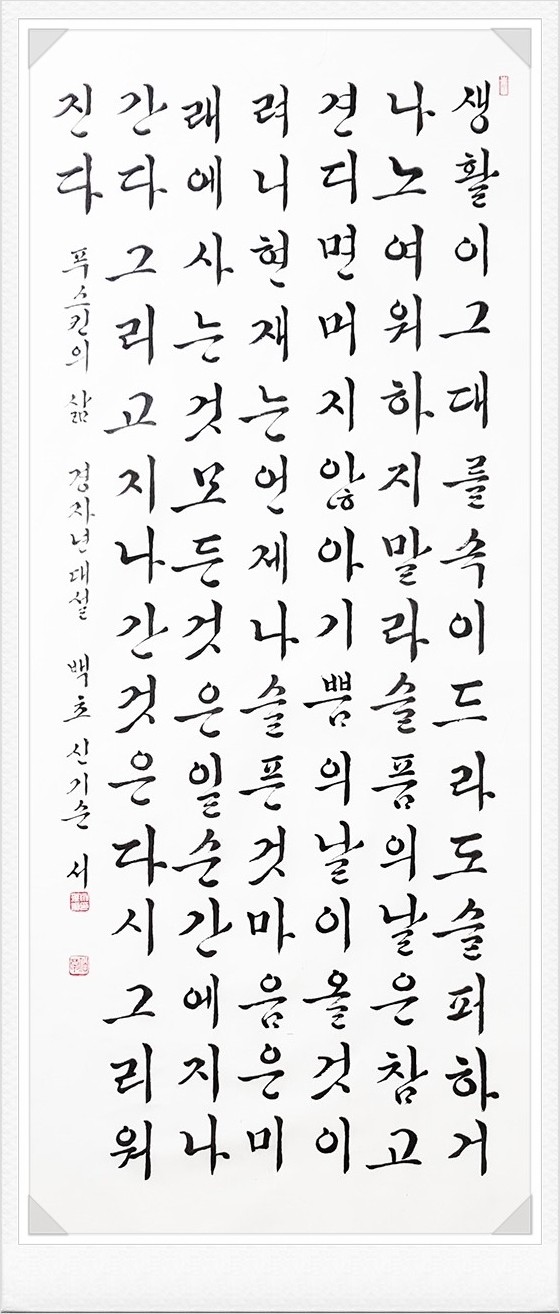 생활이그대를속이드라도슬퍼하거
나노여워하지말라슬픔의날은참고
견디면머지않아기쁨의날이올것이
려니현재는언제나슬픈것마음은미
래에사는것모든것은일순간에지나
간다그리고지나간것은다시그리워
진다
푸스킨의 삶 경자년대설 백초 신기순 서